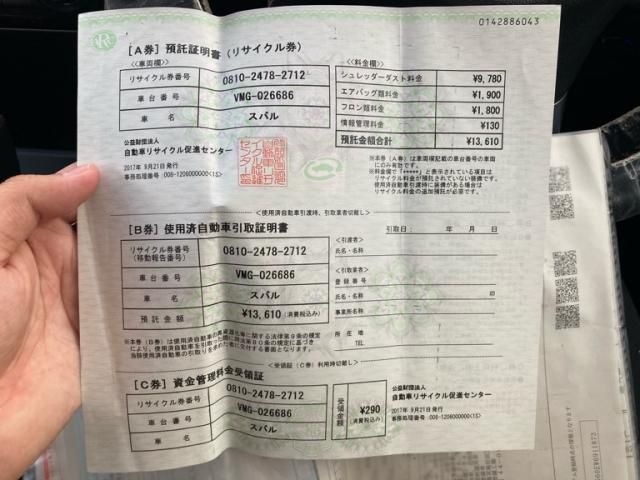 0142886043
[A券] 預託証明書(リサイクル券)
《車両欄》
リサイクル券番号 0810-2478-2712
車台番号 VMG-026686
車名 スバル
《料金欄》
シュレッダーダスト料金 ¥9,780
エアバッグ類料金 ¥1,900
フロン類料金 ¥1,800
情報管理料金 ¥130
預託金額合計 ¥13,610
公益財団法人
自動車リサイクル促進センター
2017年 9月21日 発行
事務処理番号 :008-1206000000<1S>
※本券(A券)は車両欄記載の車台番号の車両
にのみ有効です。
※料金欄で「*****」と表示されている項目は
リサイクル料金が預託されていない装備です。
使用済自動車引渡時に装備がある場合は
リサイクル料金の追加預託が必要です。
<使用済自動車引渡時、引取業者切離し>
[B券] 使用済自動車引取証明書
引取日: 年 月 日
リサイクル券番号
(移動報告番号) 0810-2478-2712
車台番号 VMG-026686
車名 スバル
預託金額 ¥13,610 (消費税込み)
<引渡者>
氏名・名称
<引取業者>
登録番号
氏名・名称 印
事業所名
所在地
TEL
※本券(B券)は使用済自動車の再資源化等に関する法律第9条の規定
により、使用済自動車を引取った際に同法第80条の規定に基づき
当該使用済自動車の引取りを求めた者に交付する書面となります。
<受領証(C券)利用時切離し>
[C券] 資金管理料金受領証
リサイクル券番号 0810-2478-2712
車台番号 VMG-026686
車名 スバル
受領金額 ¥290 (消費税込み)
公益財団法人
自動車リサイクル促進センター
2017年 9月21日 発行
事務処理番号 :008-1206000000<1S>